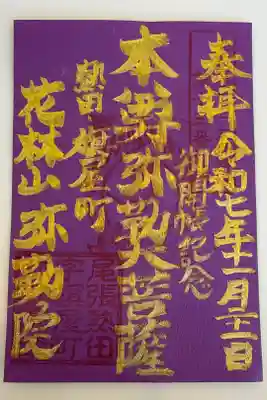 奉拝 令和七年十一月二十一日
御開帳記念
本尊弥勒大菩薩
熱田 旗屋町
花林山 弥勒院
尾張熱田
字旗屋町